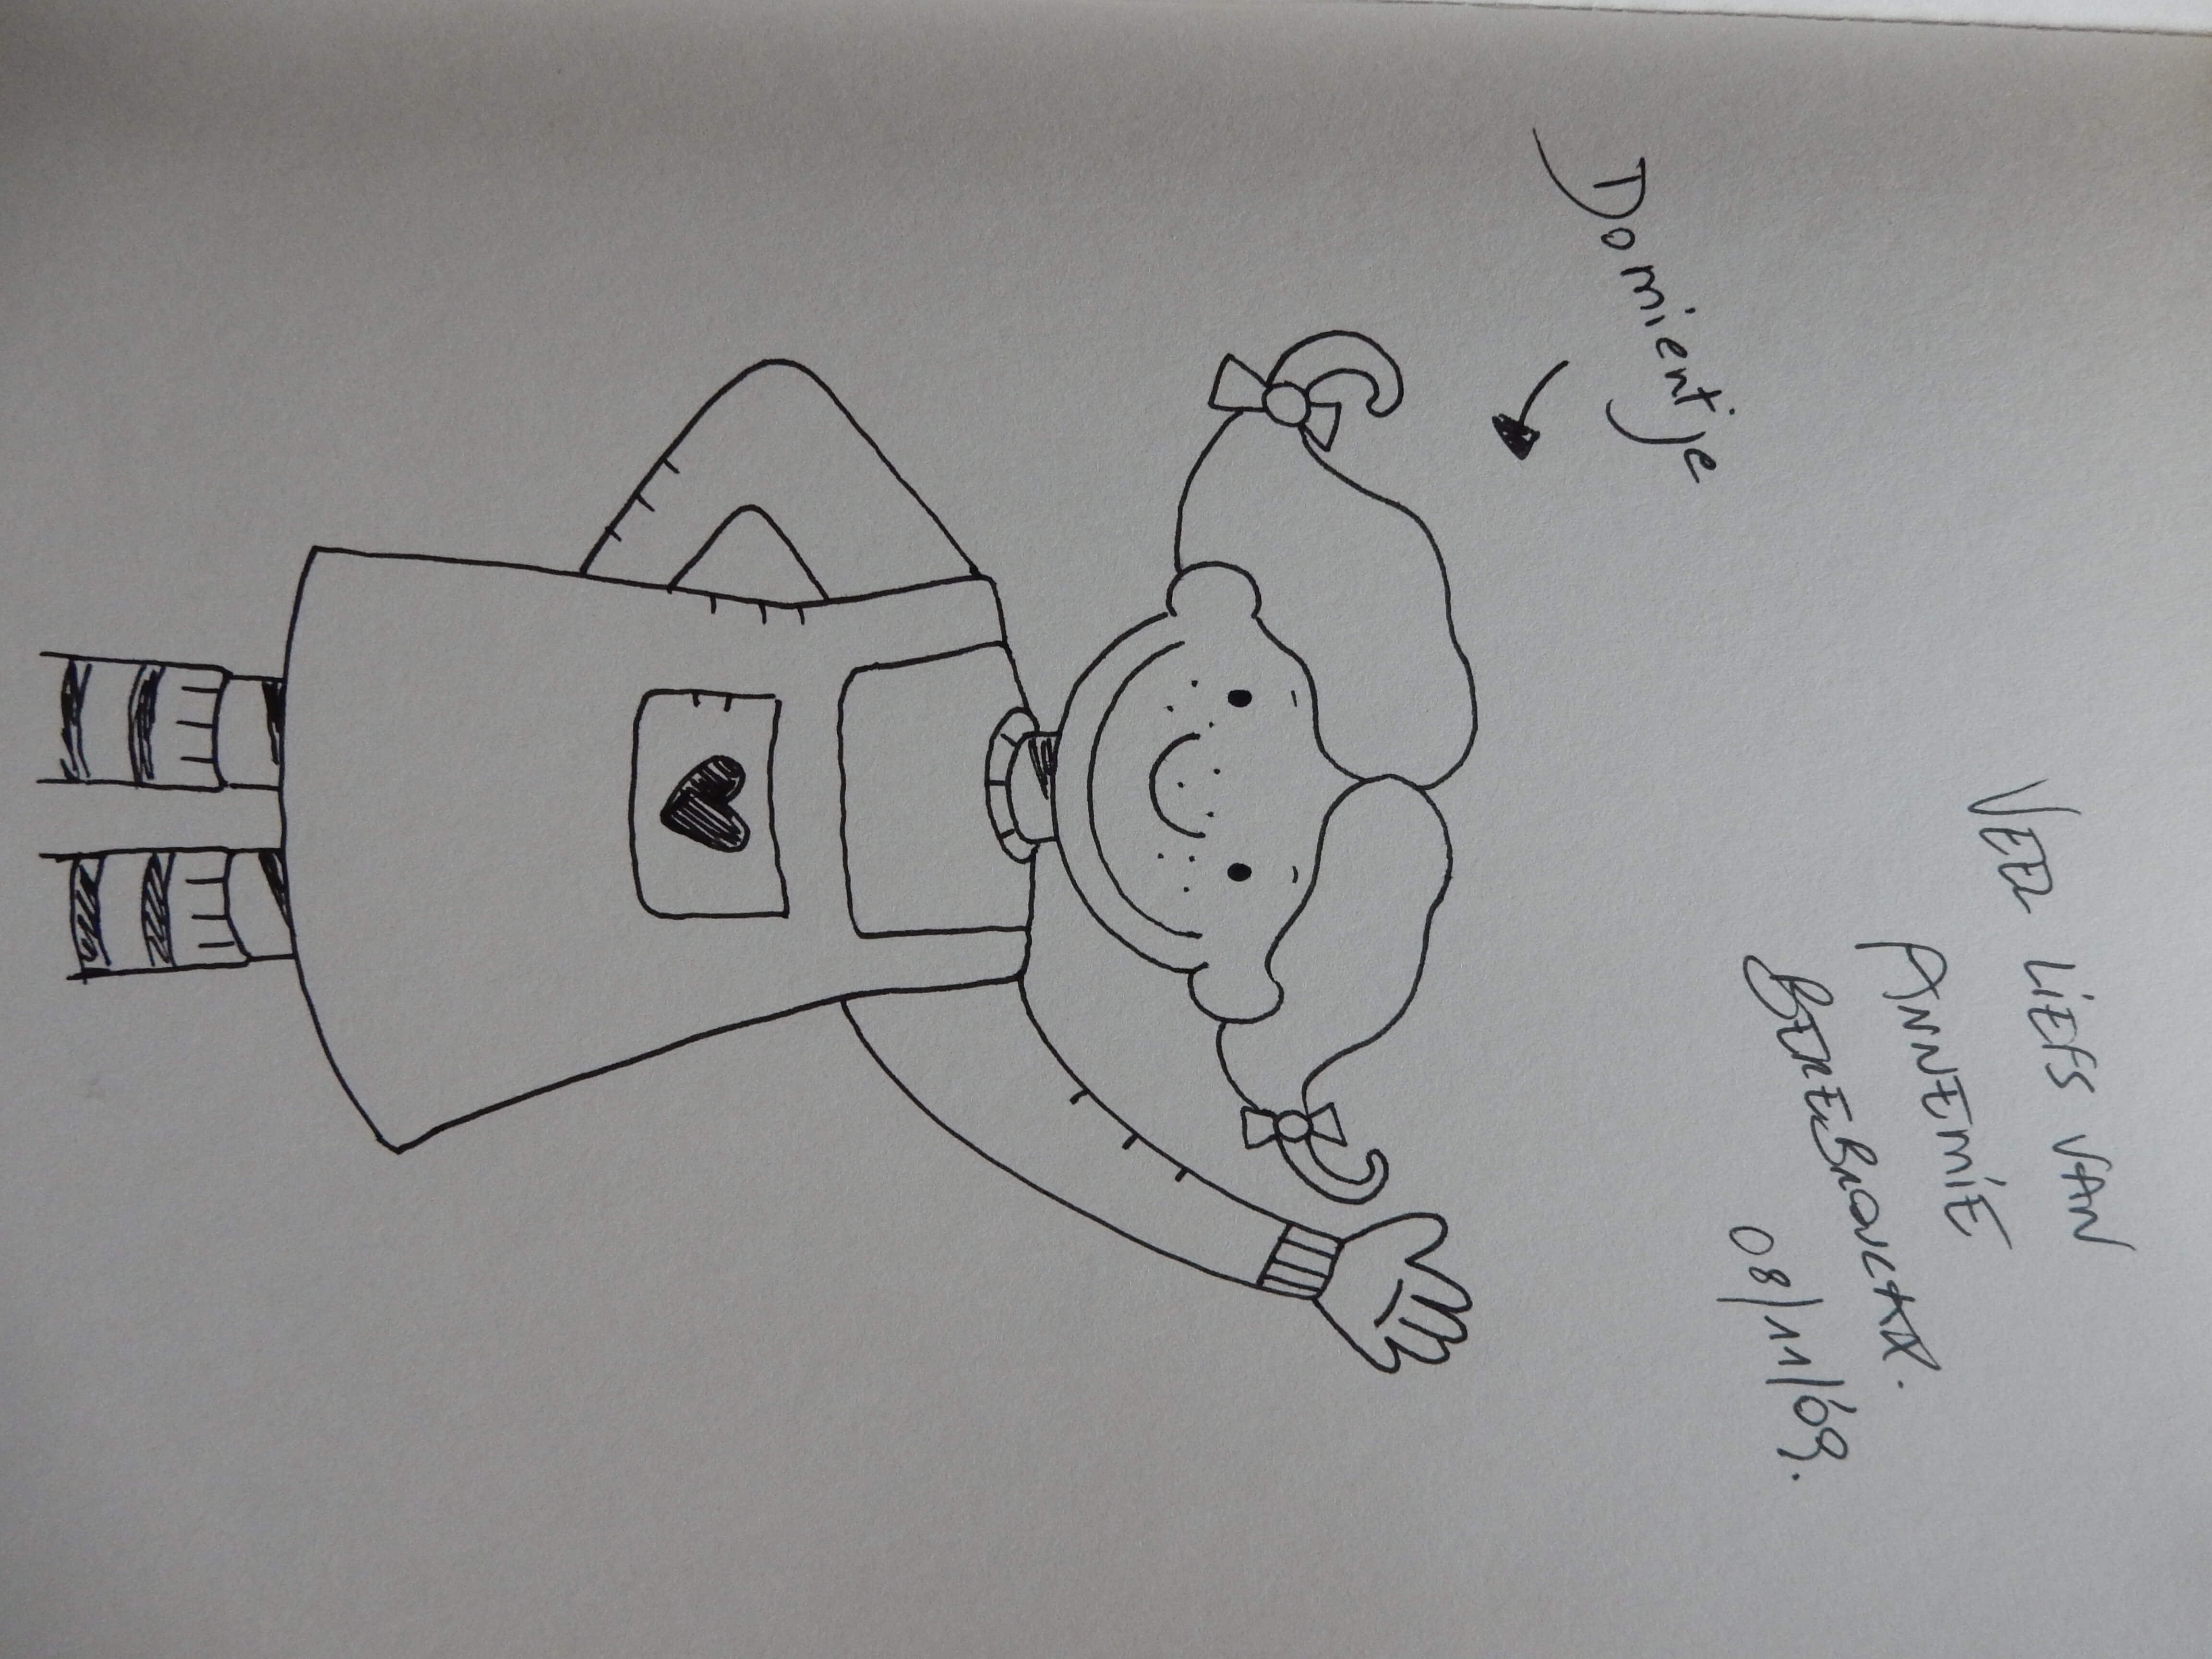 VEEL LiEFS VAN
ANNEMiE
BEREBROUCKX.
08/11/'09.
Domientje